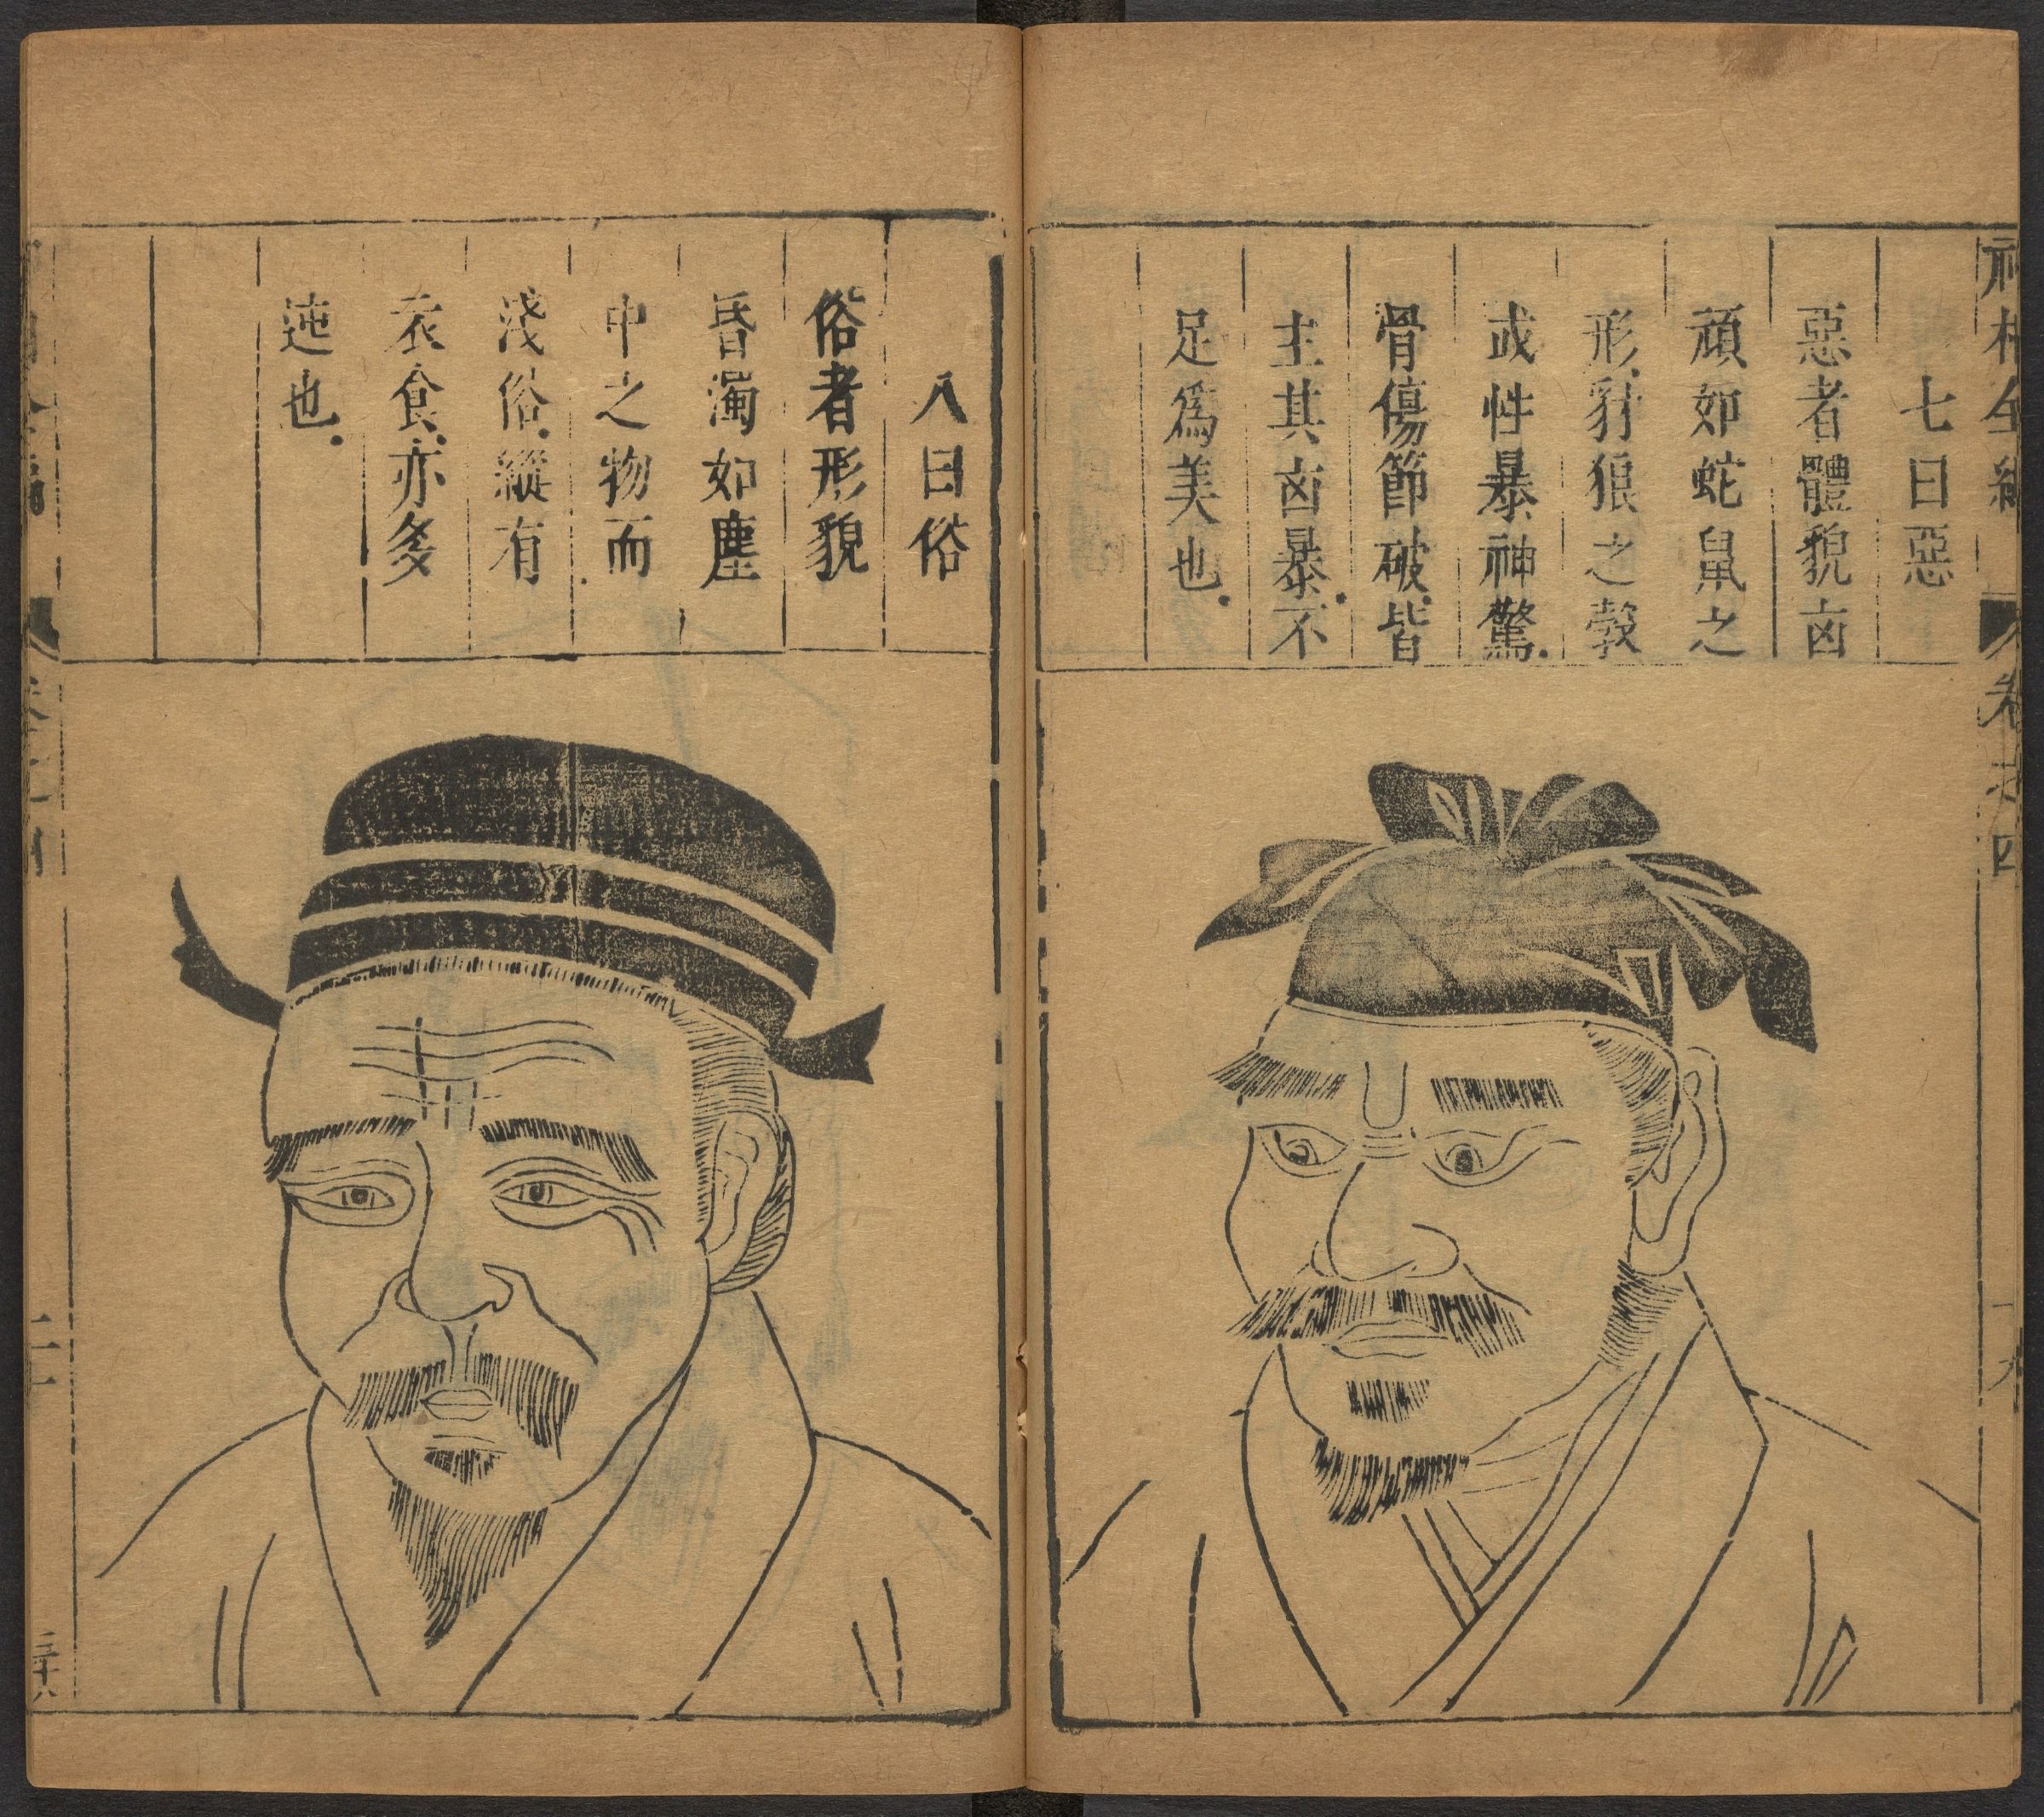 七曰惡
惡者體貌凶
頑如蛇鼠之
形豺狼之彀
或性暴神驚
骨傷節破皆
主其凶暴不
足爲美也
八曰俗
俗者形貌
昏濁如塵
中之物而
淺俗縱有
衣食亦多
迍也